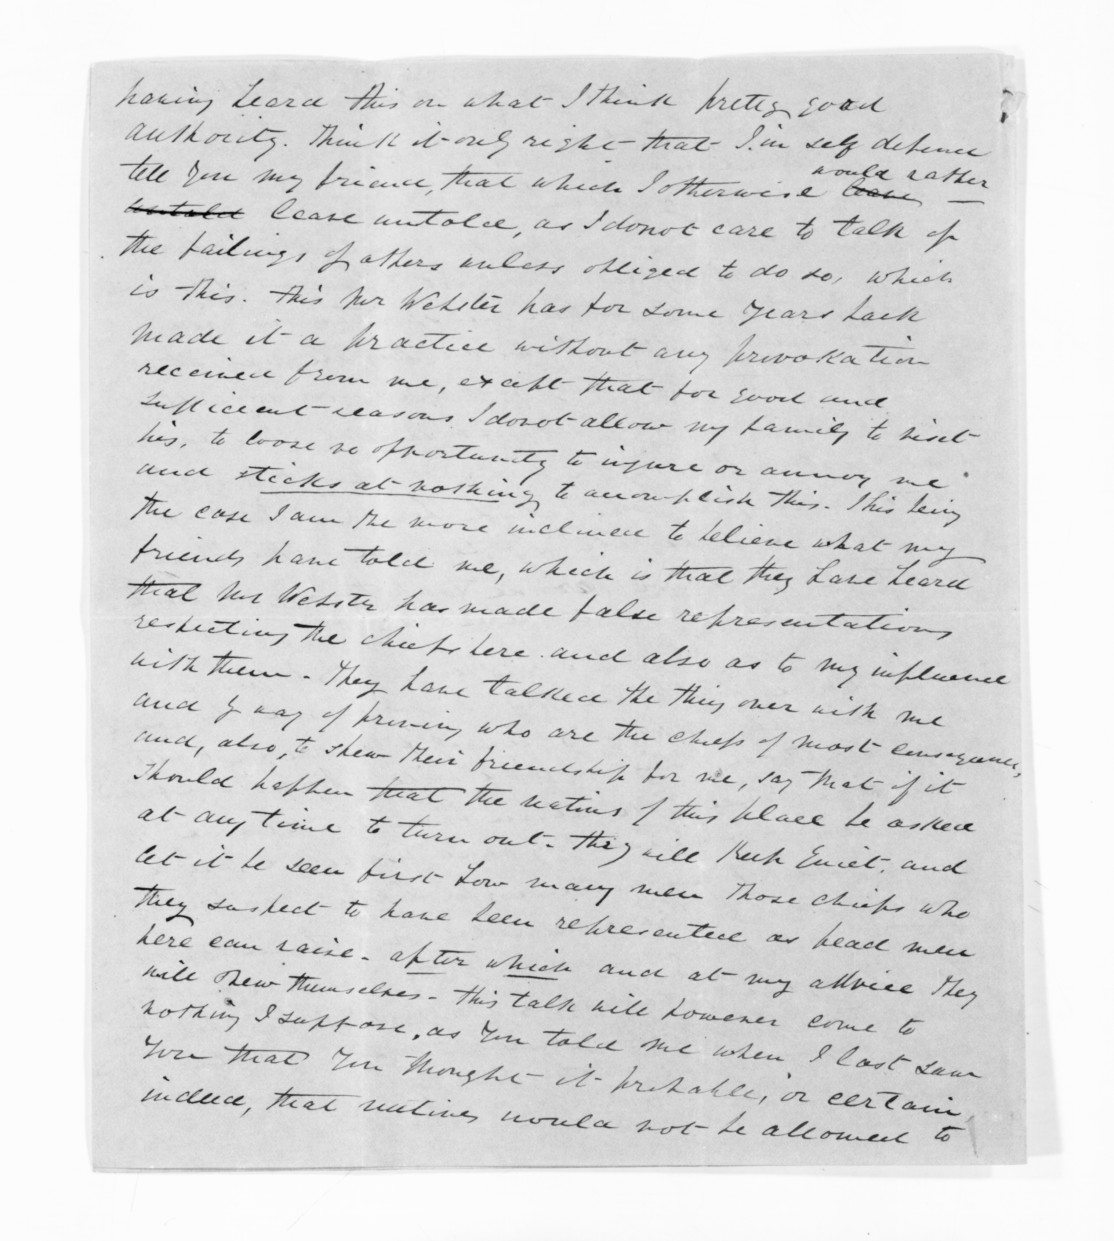 having heard this on what I think pretty good
authority. think it only right that I in self defence
tell you my friend, that which I otherwise ~~leave~~ would rather
~~untold~~ leave untold, as I donot care to talk of
the failings of others unless obliged to do so, which
is this. this Mr Webster has for some years back
made it a practice without any provokation
received from me, except that for good and
sufficient reasons I donot allow my family to visit
his, to loose no opportunity to injure or annoy me
and sticks at nothing to accomplish this. This being
the case I am the more inclined to believe what my
friends have told me, which is that they have heard
that Mr Webster has made false representations
respecting the chiefs here and also as to my influence
with them - They have talked the thing over with me
and by way of proving who are the chiefs of most consequence,
and, also, to shew their friendship for me, say that if it
should happen that the natives of this place be asked
at any time to turn out - they will keep Quiet. and
let it be seen first how many men those chiefs who
they suspect to have been represented as head men
here can raise - after which and at my advice they
will shew themselves - this talk will however come to
nothing I suppose, as you told me when I last saw
you that you thought it probable, or certain,
indeed, that natives would not be allowed to